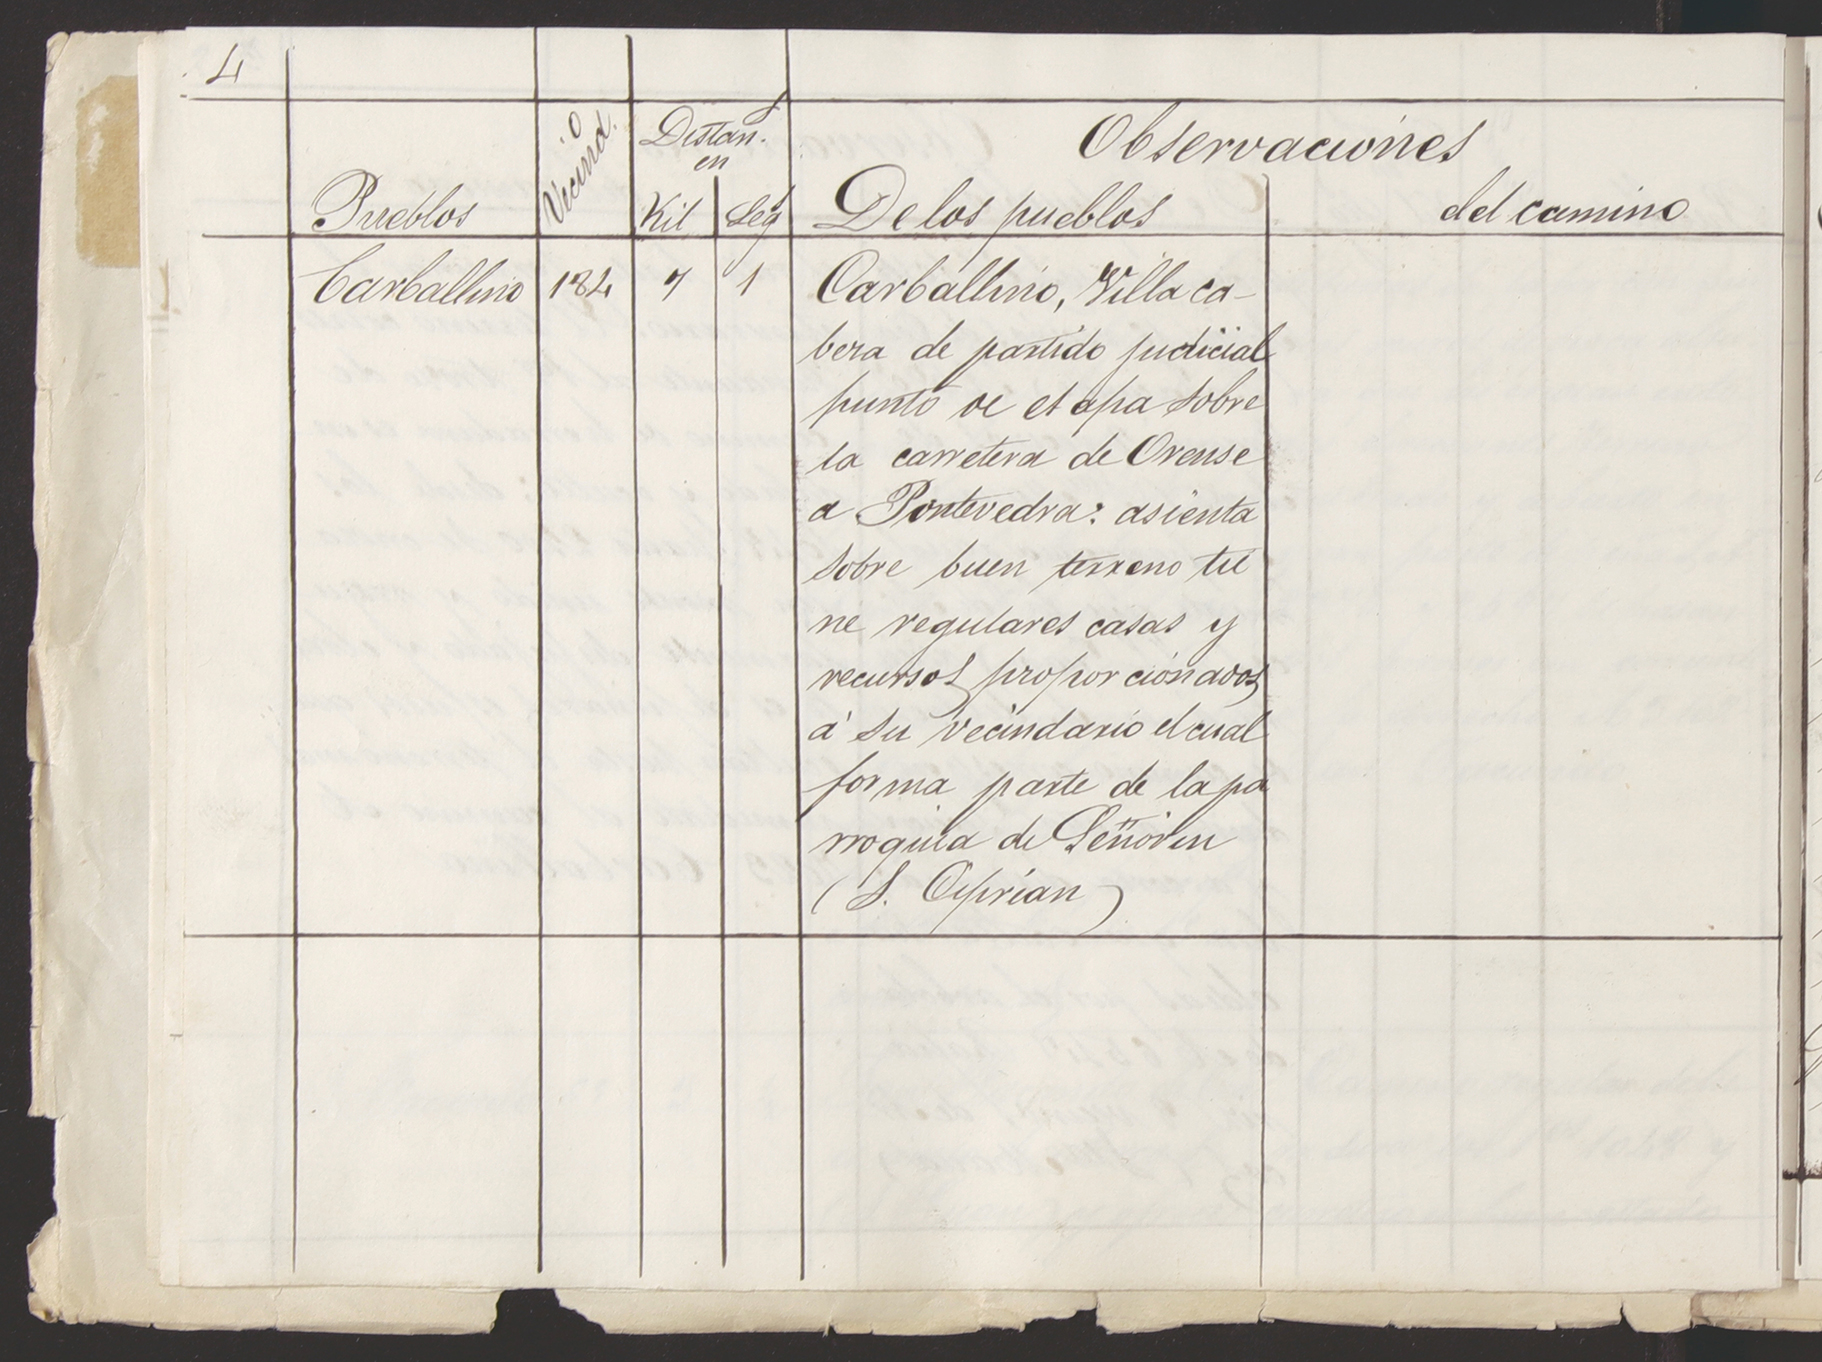 4
Pueblos
Vecind.º
Distan.s
en
Kil
Leg.s
Observaciones
De los pueblos
del camino
Carballino
184
7
1
Carballino, Villa ca-
bera de partido judicial
punto de etapa sobre
la carretera de Orense
a Pontevedra: asienta
sobre buen terreno tie
ne regulares casas y
recursos proporcionados
á su vecindario el cual
forma parte de la pa
rroquia de Señorin
(S. Ciprian)